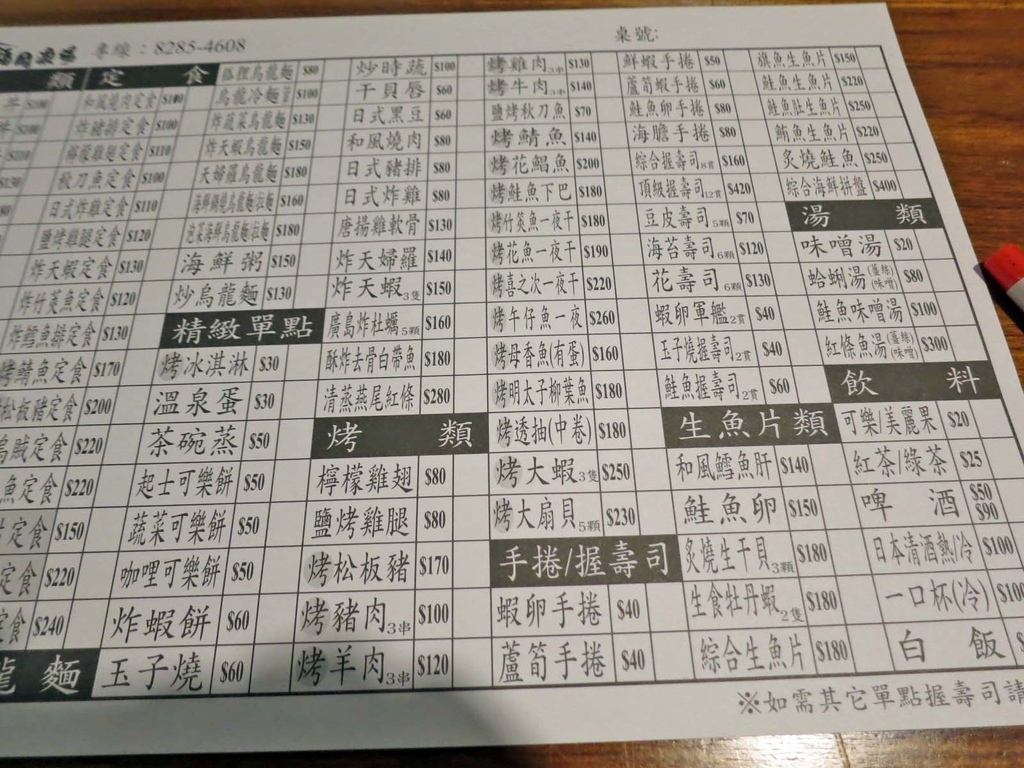 專線：8285-4608
桌號:
類 定 食
和風燒肉定食 $140
炸豬排定食 $100
檸檬雞翅定食 $110
秋刀魚定食 $100
日式炸雞定食 $110
鹽烤雞腿定食 $120
炸天蝦定食 $130
炸竹筴魚定食 $120
炸鱈魚排定食 $130
烤鯖魚定食 $170
松板豬定食 $200
烏賊定食 $220
魚定食 $220
定食 $150
定食 $220
定食 $240
龍麵
狐狸烏龍麵 $80
烏龍冷麵 $100
炸蔬菜烏龍麵 $130
炸天蝦烏龍麵 $150
天婦羅烏龍麵 $180
$160
$180
海鮮粥 $150
炒烏龍麵 $130
精緻單點
烤冰淇淋 $30
溫泉蛋 $30
茶碗蒸 $50
起士可樂餅 $50
蔬菜可樂餅 $50
咖哩可樂餅 $50
炸蝦餅 $60
玉子燒 $60
炒時蔬 $100
干貝唇 $60
日式黑豆 $60
和風燒肉 $80
日式豬排 $80
日式炸雞 $80
唐揚雞軟骨 $130
炸天婦羅 $140
炸天蝦3隻 $150
廣島炸牡蠣5顆 $160
酥炸去骨白帶魚 $180
清蒸燕尾紅條 $280
烤 類
檸檬雞翅 $80
鹽烤雞腿 $80
烤松板豬 $170
烤豬肉3串 $100
烤羊肉3串 $120
烤雞肉3串 $130
烤牛肉3串 $140
鹽烤秋刀魚 $70
烤鯖魚 $140
烤花鯧魚 $200
烤鮭魚下巴 $180
烤竹筴魚一夜干 $180
烤花魚一夜干 $190
烤喜之次一夜干 $220
烤午仔魚一夜 $260
烤母香魚(有蛋) $160
烤明太子柳葉魚 $180
烤透抽(中卷) $180
烤大蝦3隻 $250
烤大扇貝5顆 $230
手捲/握壽司
蝦卵手捲 $40
蘆筍手捲 $40
鮮蝦手捲 $50
蘆筍蝦手捲 $60
鮭魚卵手捲 $80
海膽手捲 $80
綜合握壽司8貫 $160
頂級握壽司12貫 $420
豆皮壽司5顆 $70
海苔壽司6顆 $120
花壽司6顆 $130
蝦卵軍艦2貫 $40
玉子燒握壽司2貫 $40
鮭魚握壽司2貫 $60
生魚片類
和風鱈魚肝 $140
鮭魚卵 $150
炙燒生干貝3顆 $180
生食牡丹蝦2隻 $180
綜合生魚片 $180
旗魚生魚片 $150
鮭魚生魚片 $220
鮭魚肚生魚片 $250
鮪魚生魚片 $220
炙燒鮭魚 $250
綜合海鮮拼盤 $400
湯 類
味噌湯 $20
蛤蜊湯(薑絲)(味噌) $80
鮭魚味噌湯 $100
紅條魚湯(薑絲)(味噌) $300
飲 料
可樂/美麗果 $20
紅茶/綠茶 $25
啤 酒 $50 $90
日本清酒熱/冷 $100
一口杯(冷) $100
白 飯
※如需其它單點握壽司請